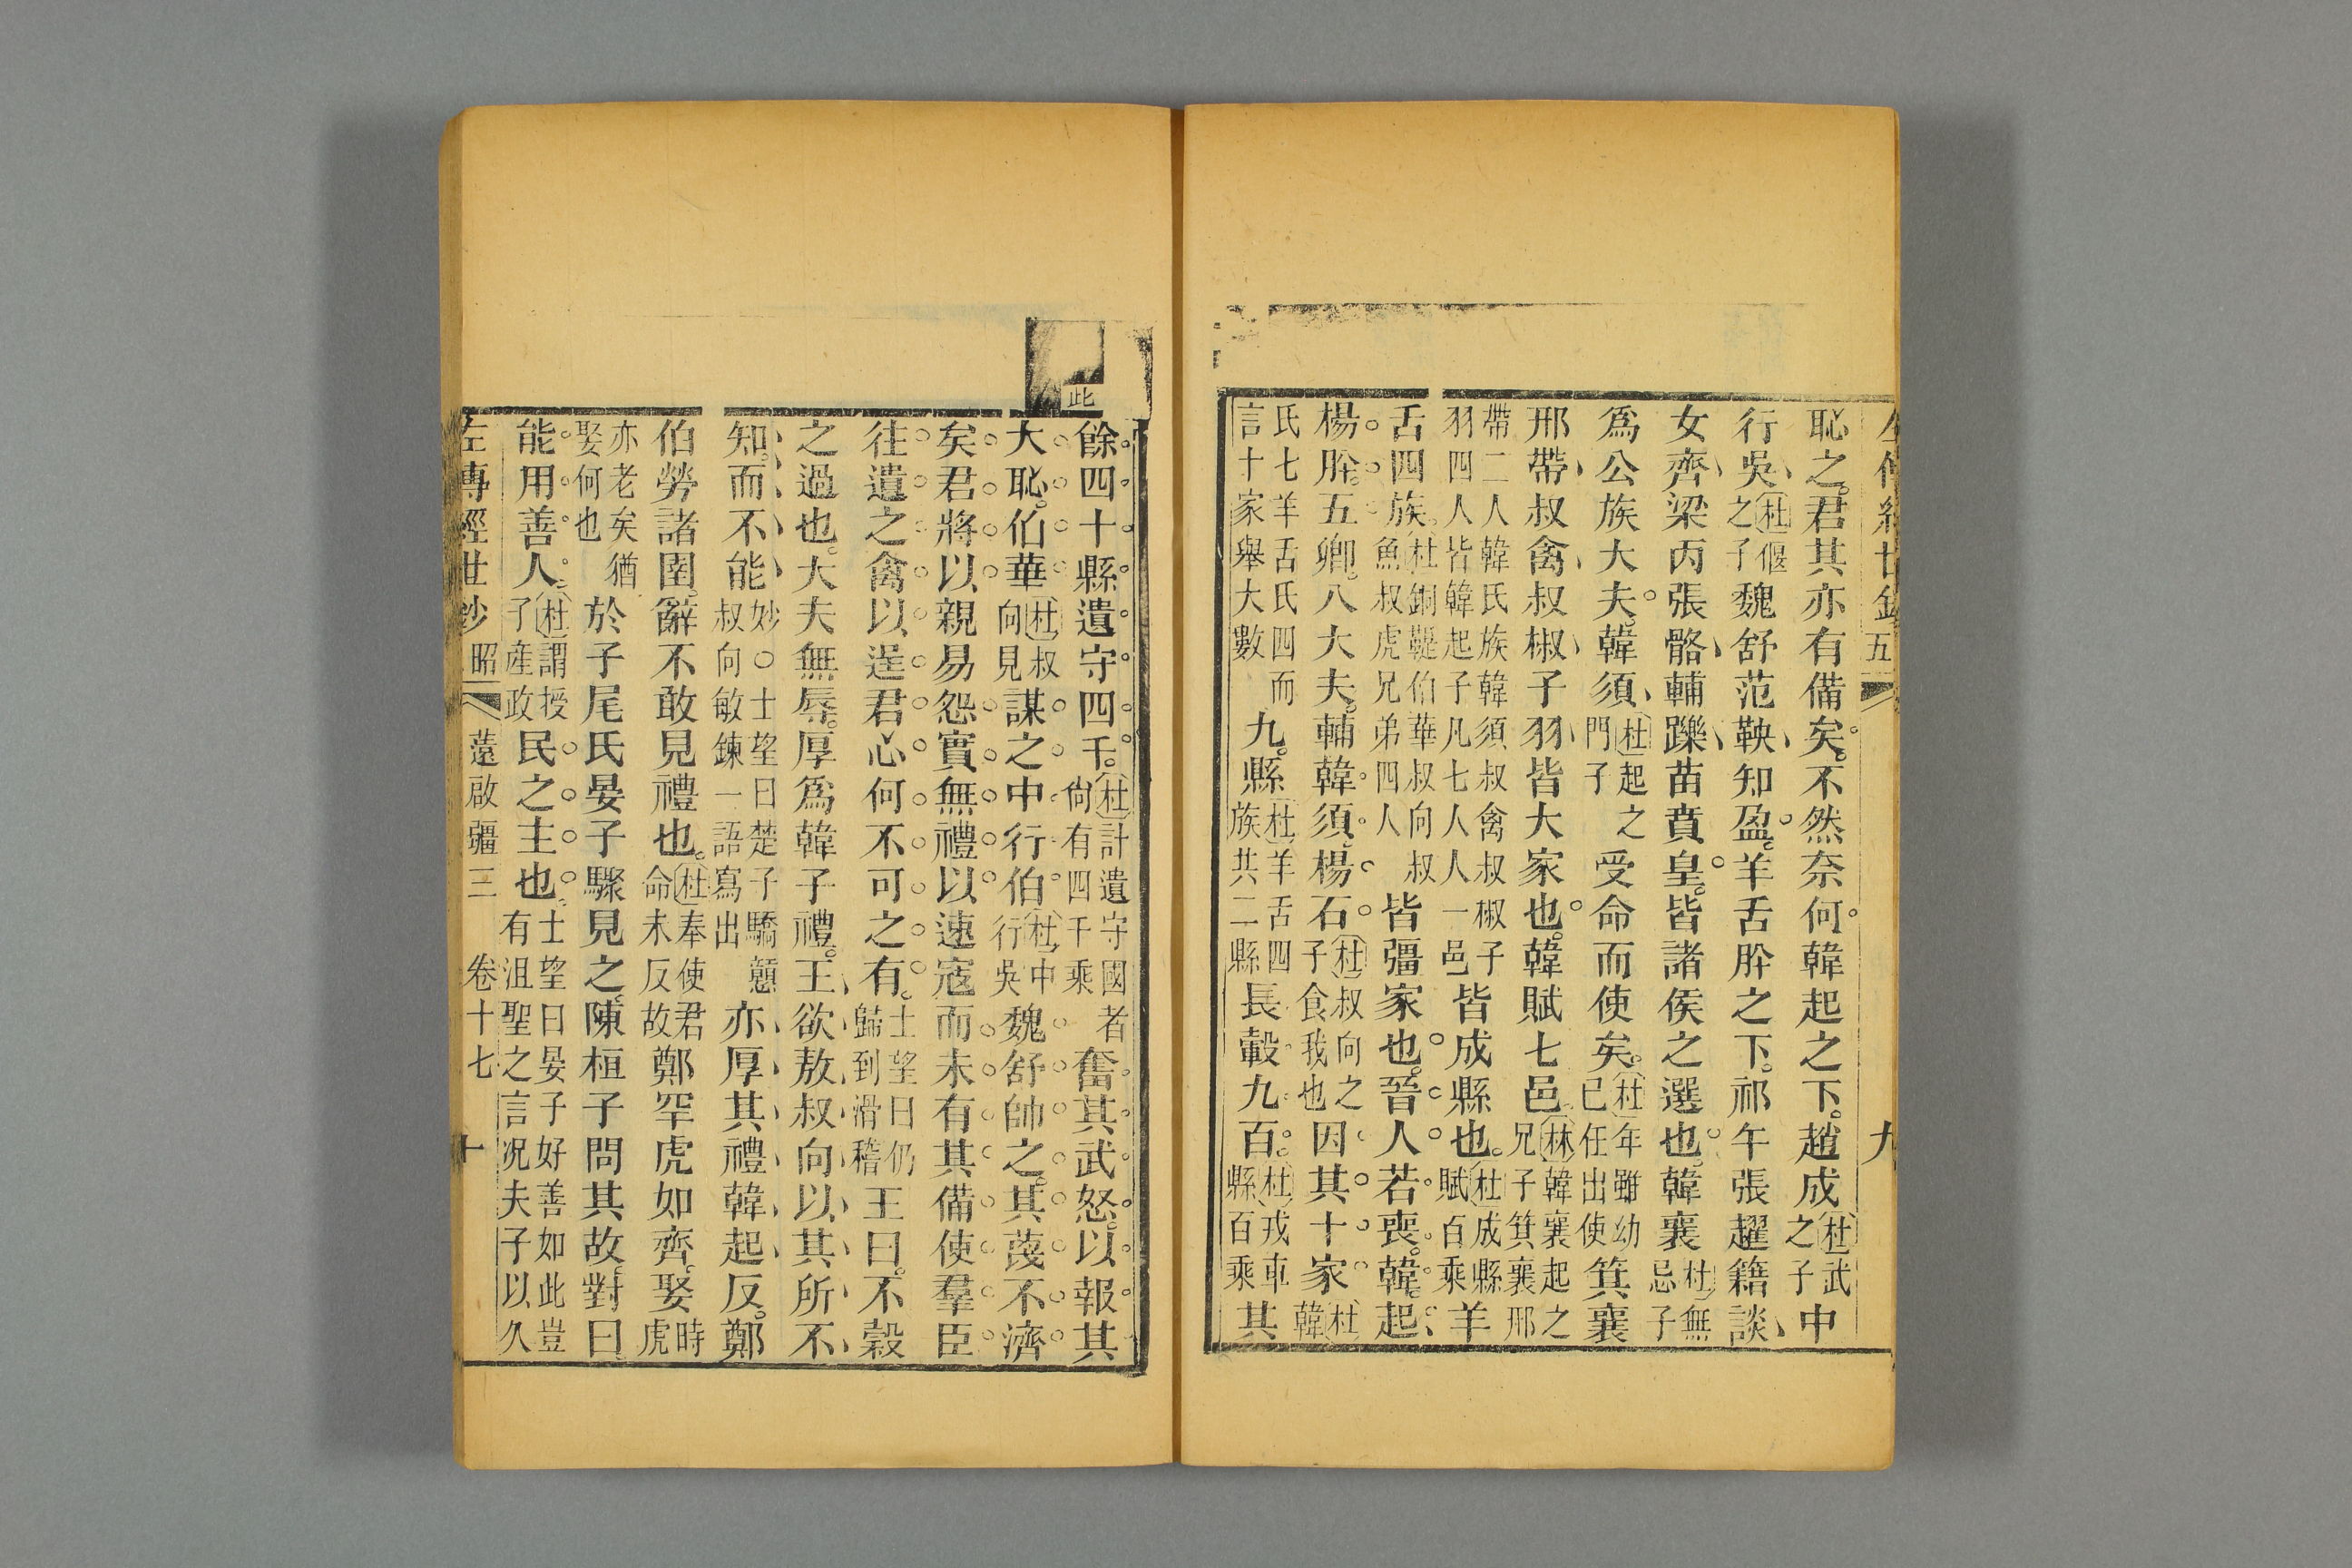 五 九
恥之君其亦有備矣。不然奈何韓起之下。趙成杜武之子中
行吳杜偃之子魏舒范鞅知盈。羊舌肸之下。祁午張趯籍談
女齊梁丙張骼輔躒苗賁皇。皆諸侯之選也。韓襄杜無忌子
爲公族大夫。韓須杜起之門子受命而使矣。杜年雖幼已任出使箕襄
邢帶叔禽叔椒子羽皆大家也。韓賦七邑林韓襄起之兄子箕襄邢
帶二人韓氏族韓須叔禽叔椒子羽四人皆韓起子凡七人人一邑皆成縣也。杜成縣賦百乘羊
舌四族。杜銅鞮伯華叔向叔魚叔虎兄弟四人皆彊家也。晉人若喪。韓起
楊肸。五卿。八大夫。輔韓須。楊石杜叔向之子食我也因其十家杜韓
氏七羊舌氏四而言十家舉大數九。縣杜羊舌四族共二縣長轂九百。杜戎車縣百乘其
此
餘四十縣遺守四千。杜計遺守國者尙有四千乘奮其武怒。以報其
大恥。伯華杜叔向兄謀之中行伯杜中行吳魏舒帥之。其蔑不濟
矣君將以親易怨實無禮以速寇而未有其備使羣臣
往遺之禽以逞君心何不可之有。士望曰仍歸到滑稽王曰。不穀
之過也。大夫無辱。厚爲韓子禮。王欲敖叔向以其所不
知。而不能妙○士望曰楚子驕戇叔向敏鍊一語寫出亦厚其禮韓起反。鄭
伯勞諸圉。辭不敢見禮也。杜奉使君命未反故鄭罕虎如齊。娶時虎
亦老矣猶娶何也於子尾氏晏子驟見之。陳桓子問其故。對曰
能用善人。杜謂授子產政民之主也。士望曰晏子好善如此豈有沮聖之言况夫子以久
左傳經世鈔 昭 薳啟疆三 卷十七 十